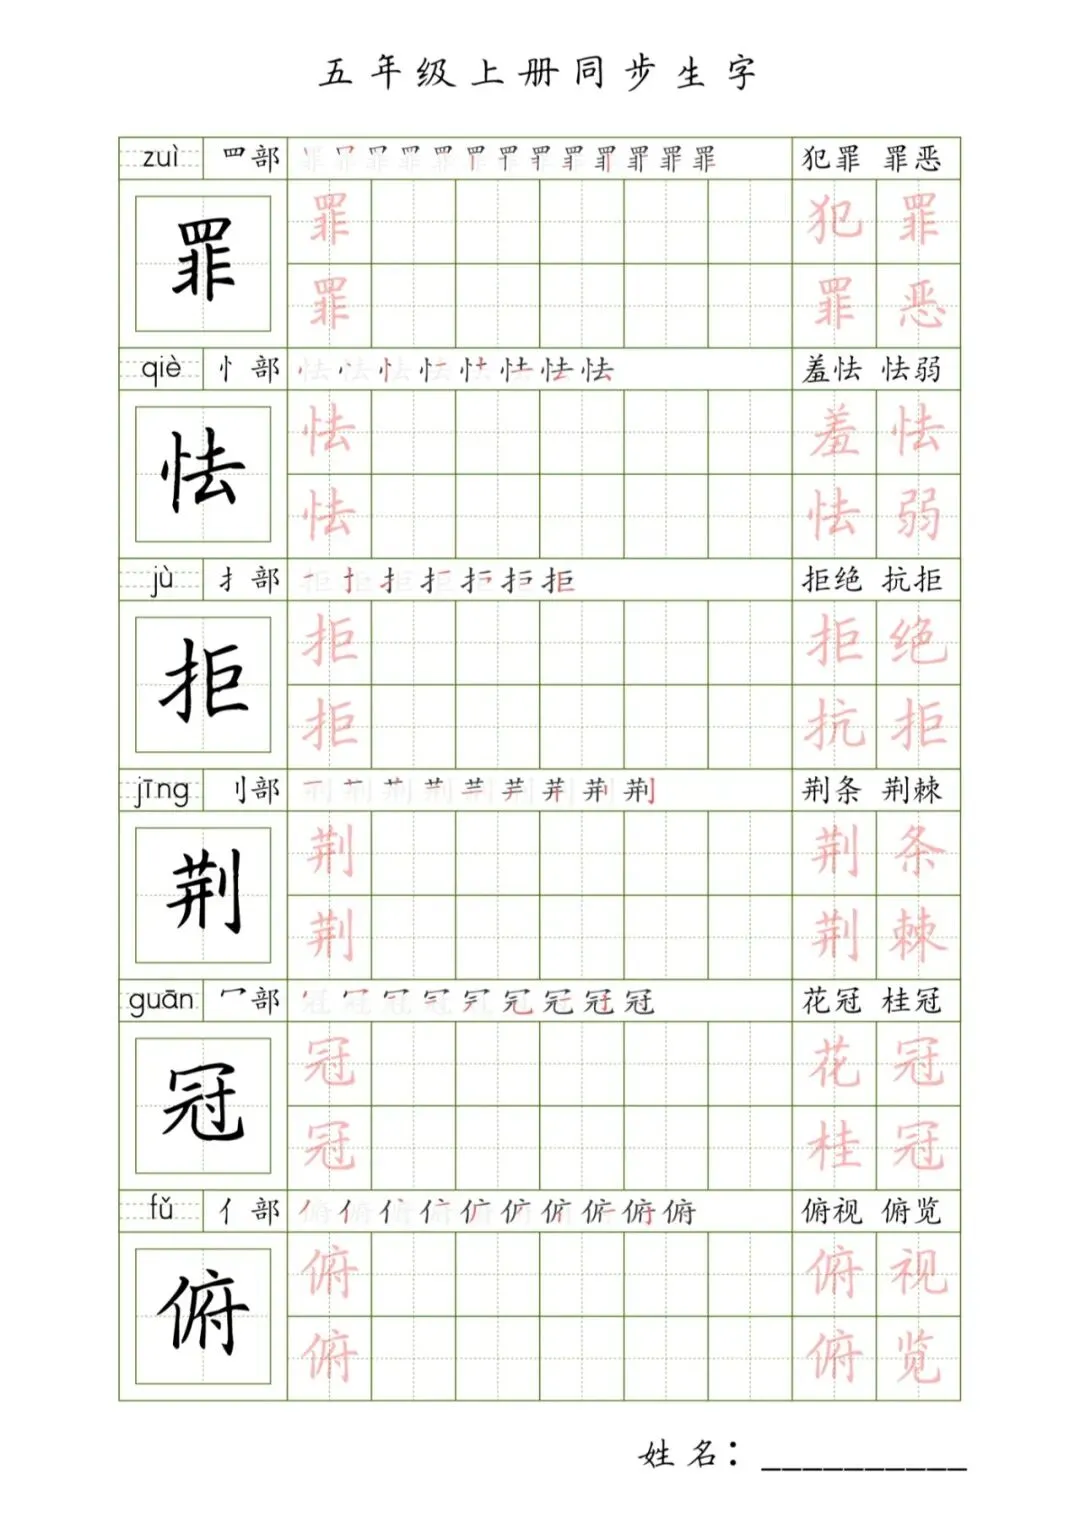 五年级上册同步生字
zuì 罒部 罪罪罪罪罪罪罪罪罪罪罪罪罪 犯罪 罪恶
罪 罪 犯罪
罪 罪恶
qiè 忄部 怯怯怯怯怯怯怯怯 羞怯 怯弱
怯 怯 羞怯
怯 怯弱
jù 扌部 拒拒拒拒拒拒拒 拒绝 抗拒
拒 拒 拒绝
拒 抗拒
jīng 刂部 荆荆荆荆荆荆荆荆荆 荆条 荆棘
荆 荆 荆条
荆 荆棘
guān 冖部 冠冠冠冠冠冠冠冠冠 花冠 桂冠
冠 冠 花冠
冠 桂冠
fǔ 亻部 俯俯俯俯俯俯俯俯俯俯 俯视 俯览
俯 俯 俯视
俯 俯览
姓名：__________